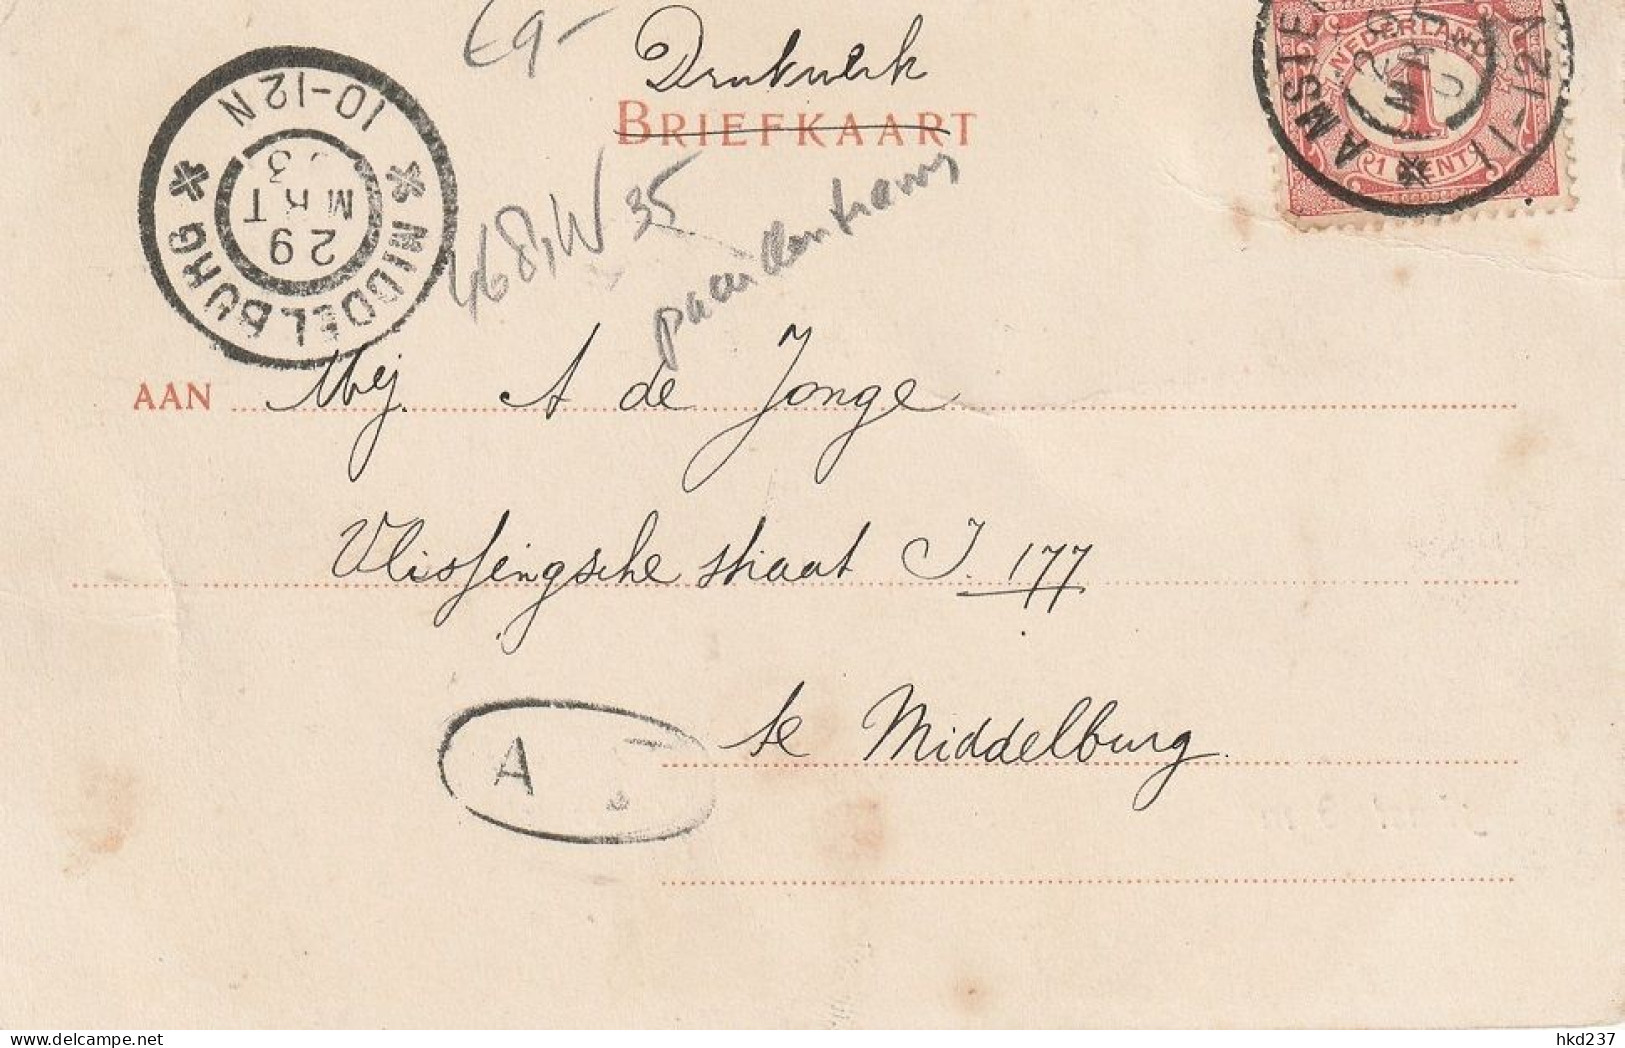 €9-
Drukwerk
BRIEFKAART
468, W 35
paardentram
MIDDELBURG
29
MRT
03
10-12N
AMSTE
MRT
11-12V
NEDERLAND
1
1 CENT
AAN Mej. A de Jonge
Vlissingsche straat I. 177
te Middelburg.
A
hkd237